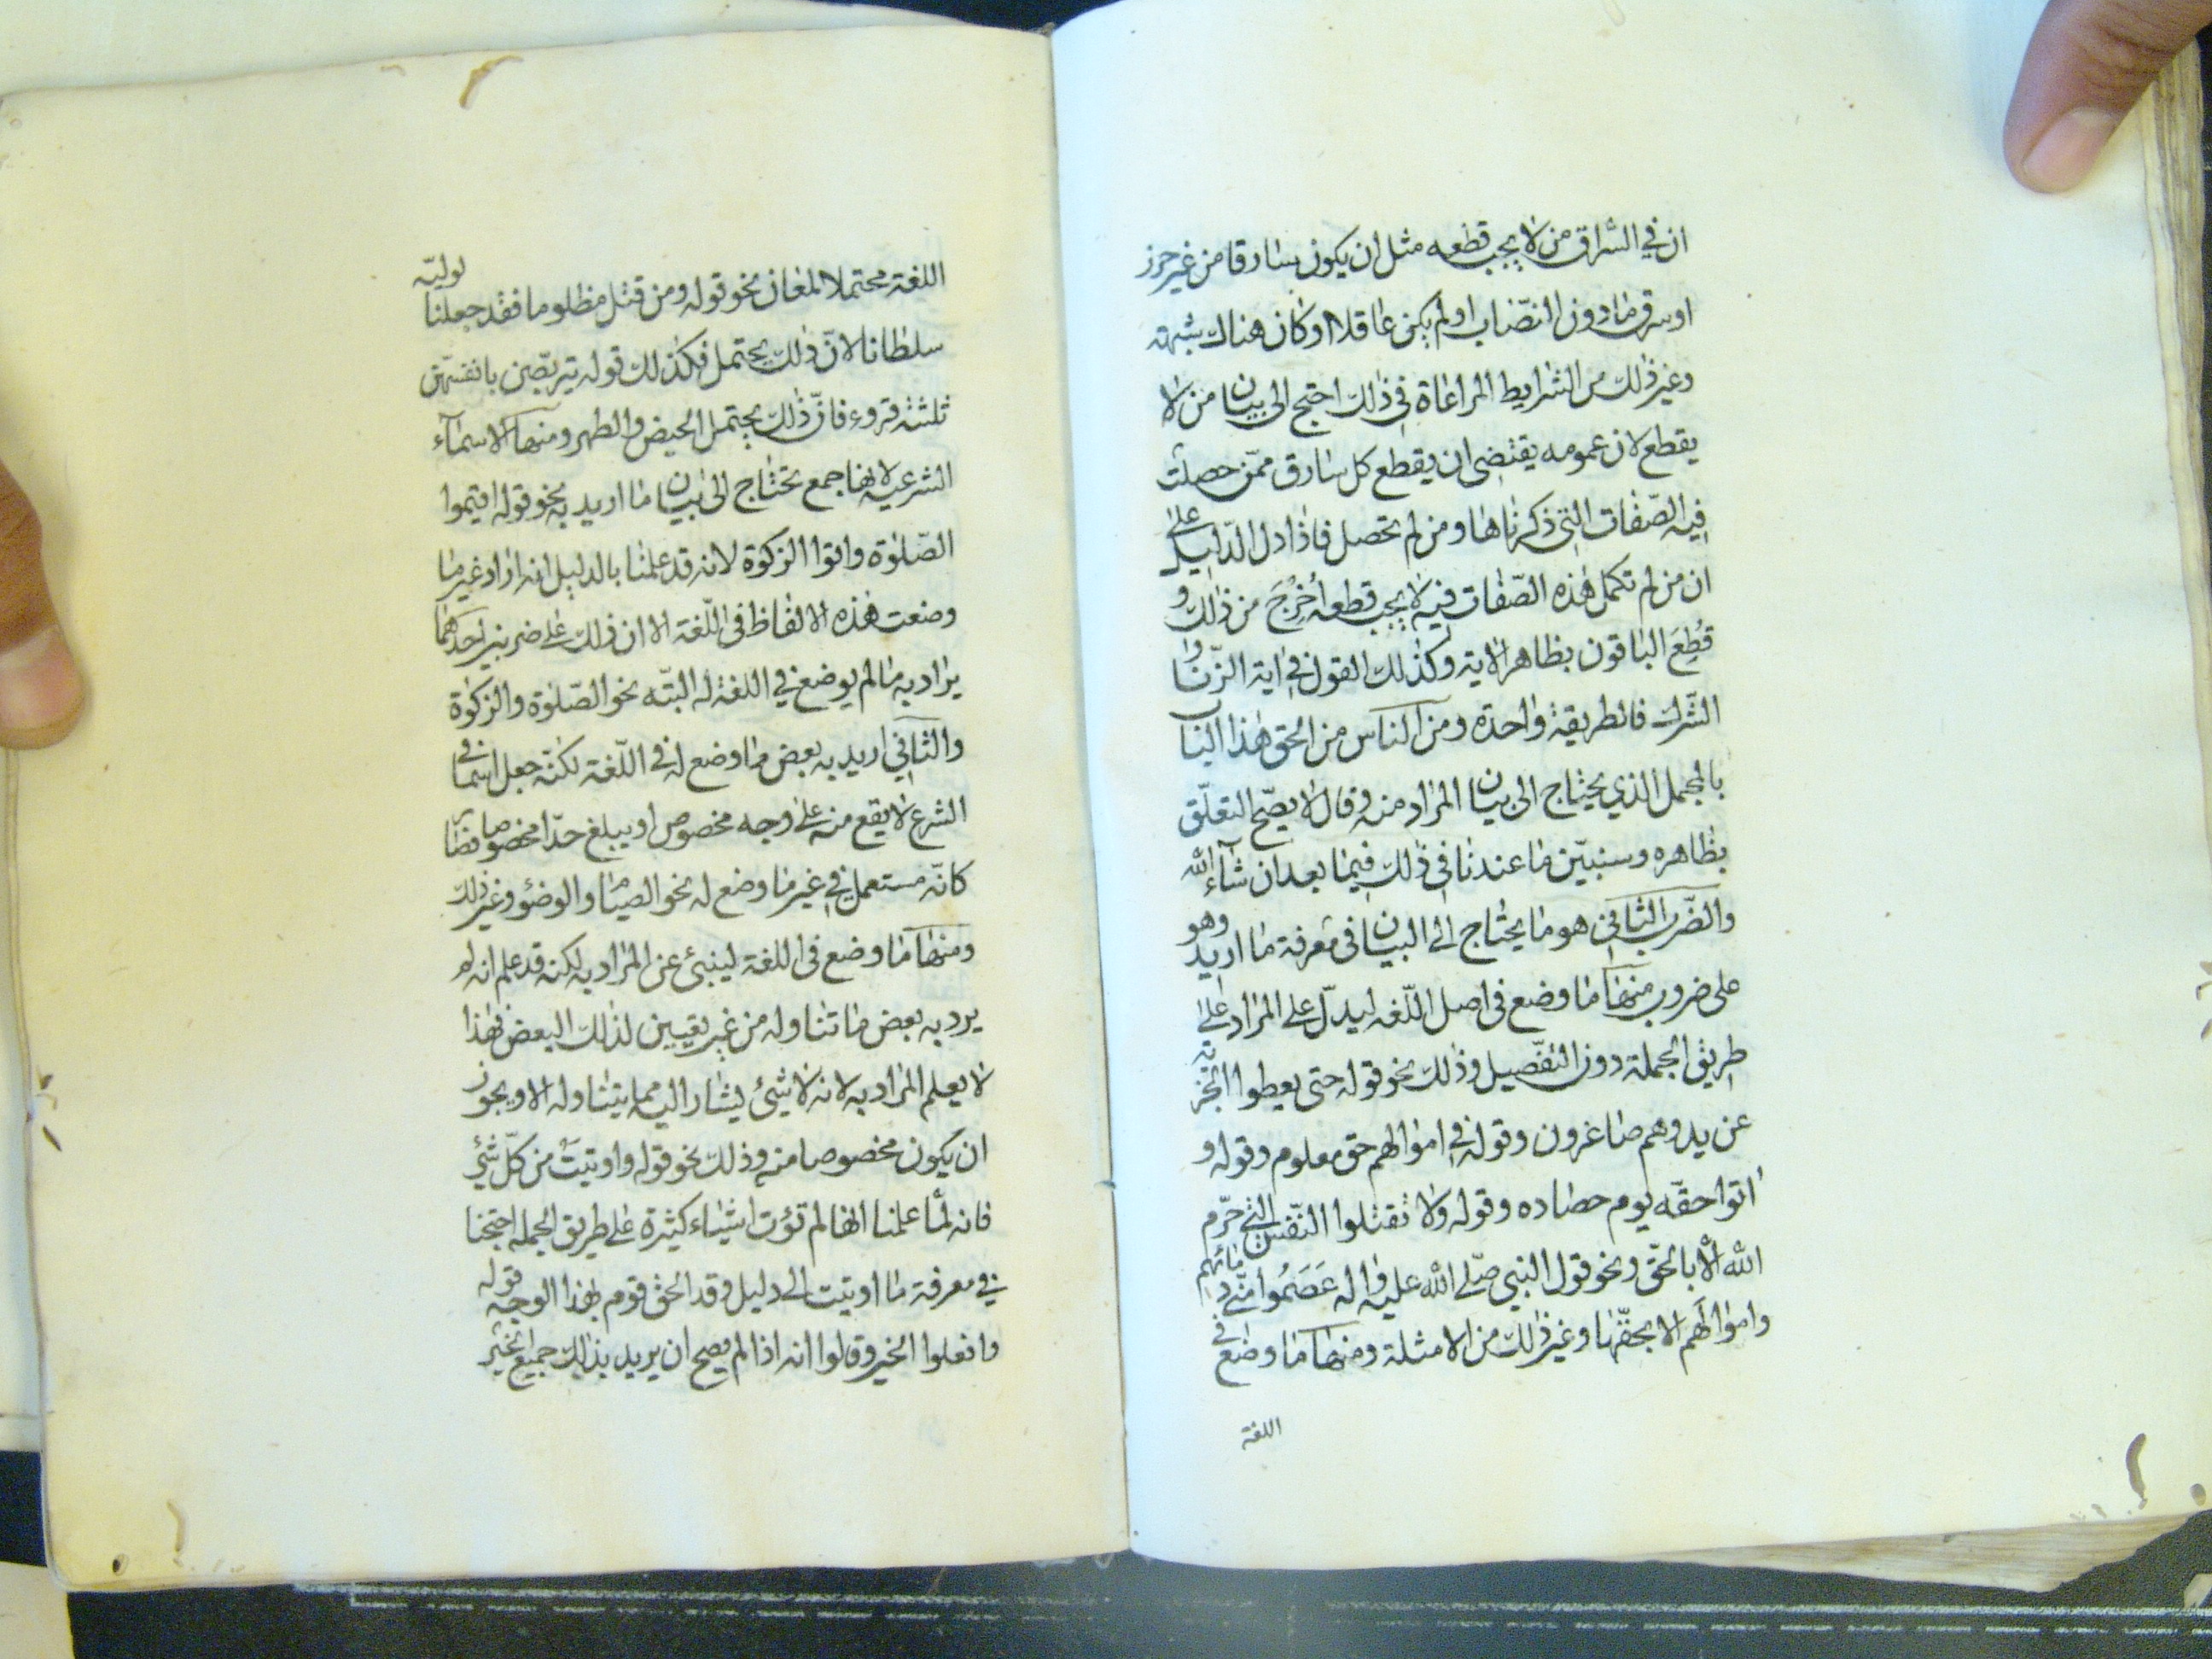 ان في السّراق من لا يجب قطعه مثل ان يكون سارقا من غير حرز
او سرق ما دون النصّاب او لم يكن عاقلا او كان هناك شبهته
وغير ذلك من الشرايط المراعاة في ذلك احتج الى بيان من لا
يقطع لان عمومه يقتضى ان يقطع كل سارق ممّن حصلت
فيه الصّفات التى ذكرناها ومن لم تحصل فاذا دل الدّليل على
ان من لم تكمل هذه الصّفات فيه لا يجب قطعه أُخْرِجَ من ذلك و
قُطِعَ الباقون بظاهر الاية وكذلك القول في اية الزّنا وا
الشّرك فالطريقة واحدة ومن الناس من الحق هذا الباب
بالمجمل الذي يحتاج الى بيان المراد منه وقال لا يصّح التعلّق
بظاهره وسنبيّن ما عندنا في ذلك فيما بعد ان شآء الله
والضّرب الثاني هو ما يحتاج الى البيان في معرفة ما اريد وهو
على ضروب منها ما وضع في اصل اللّغه ليدلّ على المراد على
طريق الجملة دون التفّصيل وذلك نحو قوله حتى يعطوا الجزية
عن يد وهم صاغرون وقوله في اموالهم حق معلوم وقوله و
اتوا حقّه يوم حصاده وقوله ولا تقتلوا النّفس التي حرّم
الله الّا بالحقّ ونحو قول النبي صلّى الله عليه واله عَصَمُوا منّي دمائهم
واموالهم الا بحقّها وغير ذلك من الامثلة ومنها ما وضع في
اللغة
اللغة محتملا لمعان نحو قوله ومن قتل مظلوما فقد جعلنا لوليّه
سلطانا لانّ ذلك يحتمل فكذلك قوله يتربّصن بانفسهّن
ثلثة قروء فانّ ذلك يحتمل الحيض والطهر ومنها الاسمآء
الشرعيه لانها جمع تحتاج الى بيان ما اريد به نحو قوله اقيموا
الصّلوة واتوا الزكوة لانه قد علمنا بالدليل انه اراد غير ما
وضعت هذه الالفاظ في اللّغة الا ان ذلك على ضربين احدهما
يراد به ما لم يوضع في اللغة له البتّه نحو الصّلوة والزكوة
والثاني اريد به بعض ما وضع له في اللّغة لكنّه جعل اسما في
الشرع لا يقع منه على وجه مخصوص او يبلغ حدّا مخصوصا فصار
كانّه مستعمل في غير ما وضع له نحو الصيام والوضؤ وغير ذلك
ومنها ما وضع في اللغة لينبئ عن المراد به لكنه قد علم انه لم
يرد به بعض ما تناوله من غير تعيين لذلك البعض فهذا
لا يعلم المراد به لانه لا شئ يشار اليه مما يتناوله الا ويجوز
ان يكون مخصوصا منه وذلك نحو قوله واوتيتُ من كلّ شئ
فانه لمّا علمنا انها لم تؤت اشياء كثيرة على طريق الجمله احتجنا
في معرفة ما اوتيت الى دليل وقد الحق قوم بهذا الوجه قوله
وافعلوا الخير وقالوا انه اذا لم يصح ان يريد بذلك جميع الخير